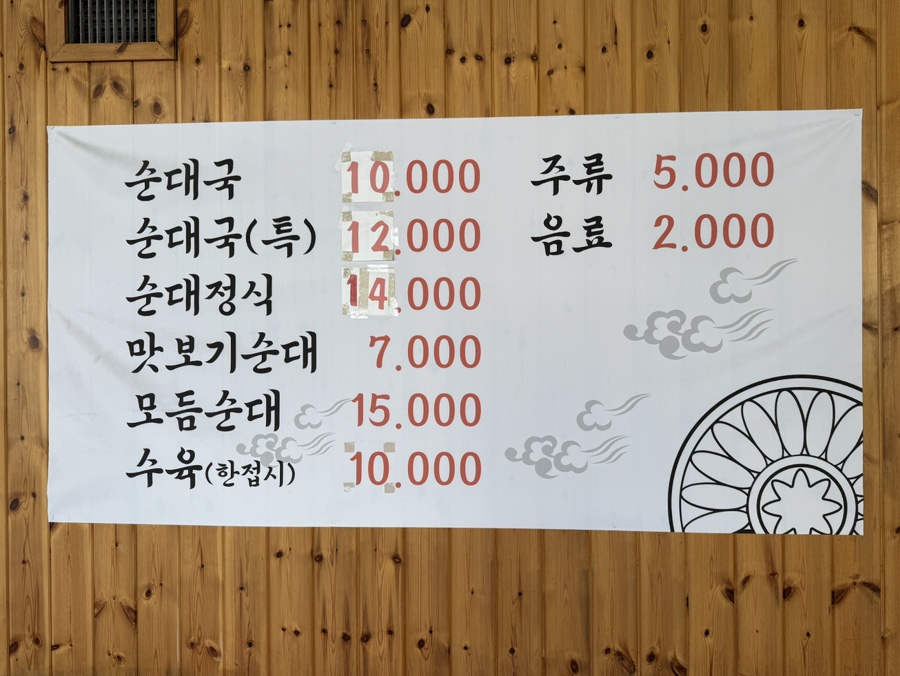 순대국 10.000
순대국(특) 12.000
순대정식 14.000
맛보기순대 7.000
모듬순대 15.000
수육(한접시) 10.000
주류 5.000
음료 2.000